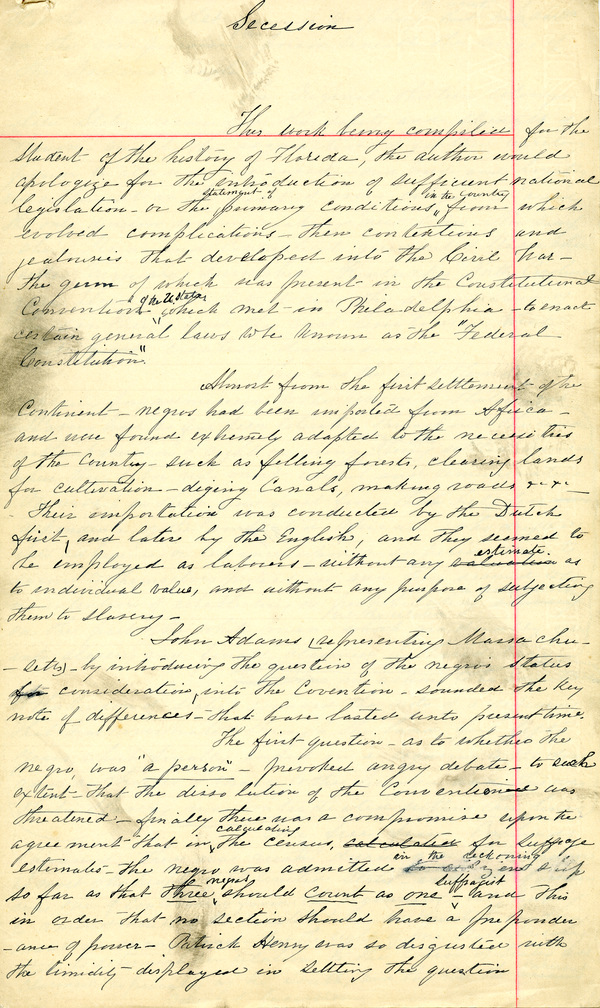 Secession
This work being compiled for the
student of the history of Florida, the author would
apologize for the introduction of sufficient national
legislation - or the statement of primary conditions, in the country from which
evolved complications - then contentions and
jealousies that developed into the Civil War -
the germ of which was present in the Constitutional
Convention of the U States which met in Philadelphia - to enact
certain general laws to be known as the "Federal
Constitution".
Almost from the first settlement of the
Continent - negros had been imported from Africa -
and were found extremely adapted to the necessities
of the Country - such as felling forests, clearing lands
for cultivation - diging Canals, making roads &c &c -
- Their importation was conducted by the Dutch
first, and later by the English, and they seemed to
be employed as laborers - without any valuation estimate. as
to individual value, and without any purpose of subjecting
them to slavery -
John Adams (representing Massachu-
- setts) - by introducing the question of the negros status
for consideration, into the Covention - sounded the key
note of differences - that have lasted unto present time.
The first question - as to whether the
negro, was "a person" - provoked angry debate - to such
extent - that the dissolution of the Convention was
threatened - finally there was a compromise upon the
agreement that in calculating the census, calculated for suffrage
estimates - the negro was admitted in the reckoning
so far as that three negros should count as one suffragist - and this
in order that no section should have a preponder
- ance of power - Patrick Henry was so disgusted with
the timidity displayed in settling the question